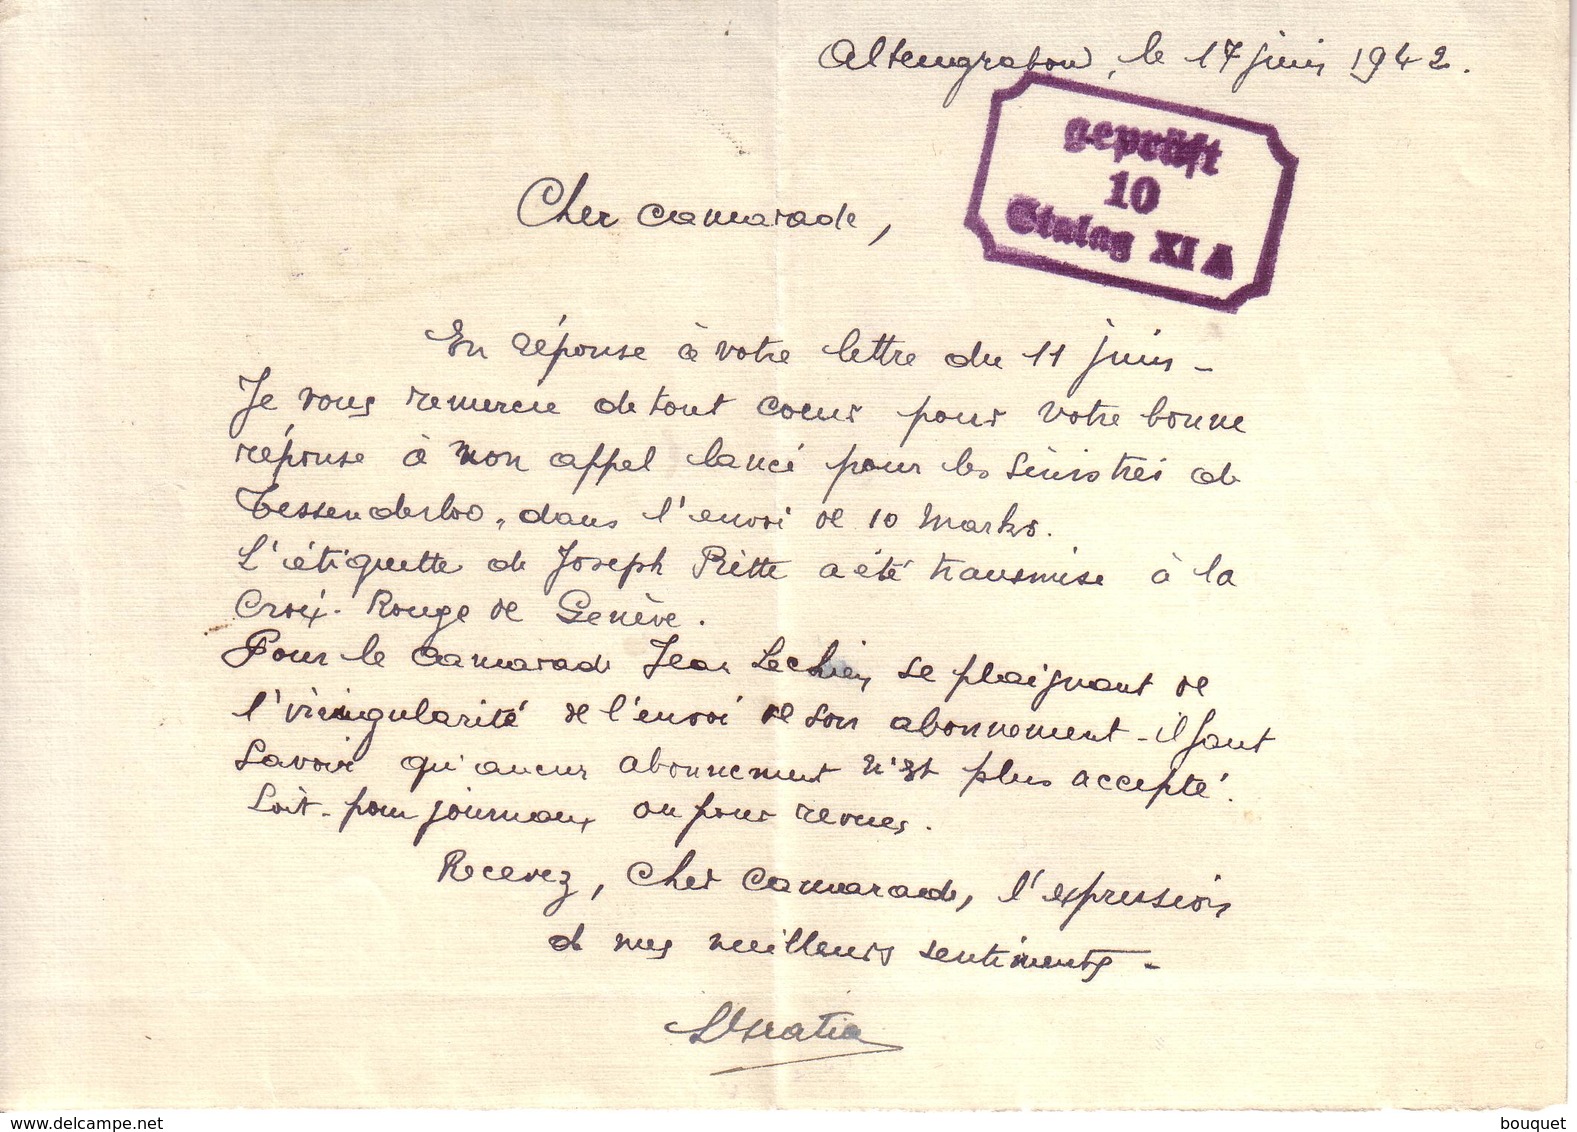 Altengrabow, le 17 juin 1942.
geprüft
10
Stalag XI A
Cher camarade,
En réponse à votre lettre du 11 juin -
Je vous remercie de tout coeur pour votre bonne
réponse à mon appel lancé pour les sinistrés de
Tessenderloo, dans l'envoi de 10 Marks.
L'étiquette de Joseph Piette a été transmise à la
Croix-Rouge de Genève.
Pour le camarade Jean Lechien se plaignant de
l'irrégularité de l'envoi de son abonnement - il faut
savoir qu'aucun abonnement n'est plus accepté.
Soit - pour journaux ou pour revues.
Recevez, Cher Camarade, l'expression
de mes meilleurs sentiments -
delcampe.net
bouquet